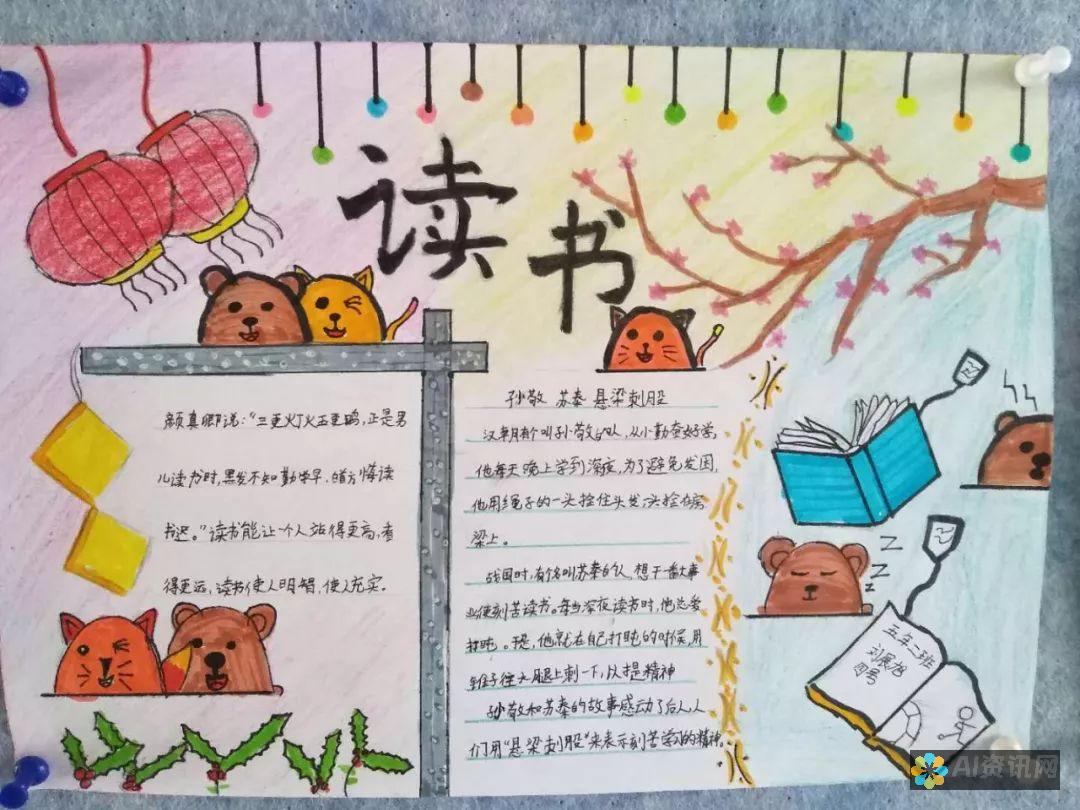 读书
颜真卿说：“三更灯火五更鸡，正是男
儿读书时，黑发不知勤学早，白首方悔读
书迟。”读书能让个人站得更高，看
得更远，读书使人明智，使人充实。
孙敬 苏秦 悬梁刺股
汉朝有个叫孙敬的人，从小勤奋好学，
他每天晚上学到深夜，为了避免发困，
他用绳子的一头拴住头发，一头拴在房
梁上。
战国时，有个名叫苏秦的人，想干一番大事
业便刻苦读书。每当深夜读书时，他总爱
打盹。于是，他就在自己打盹的时候，用
锥子往大腿上刺一下，以提精神
孙敬和苏秦的故事感动了后人，人
们用“悬梁刺股”来表示刻苦学习的精神。
Z
Z
Z
五年二班
刘展旭
四号
AI资讯网